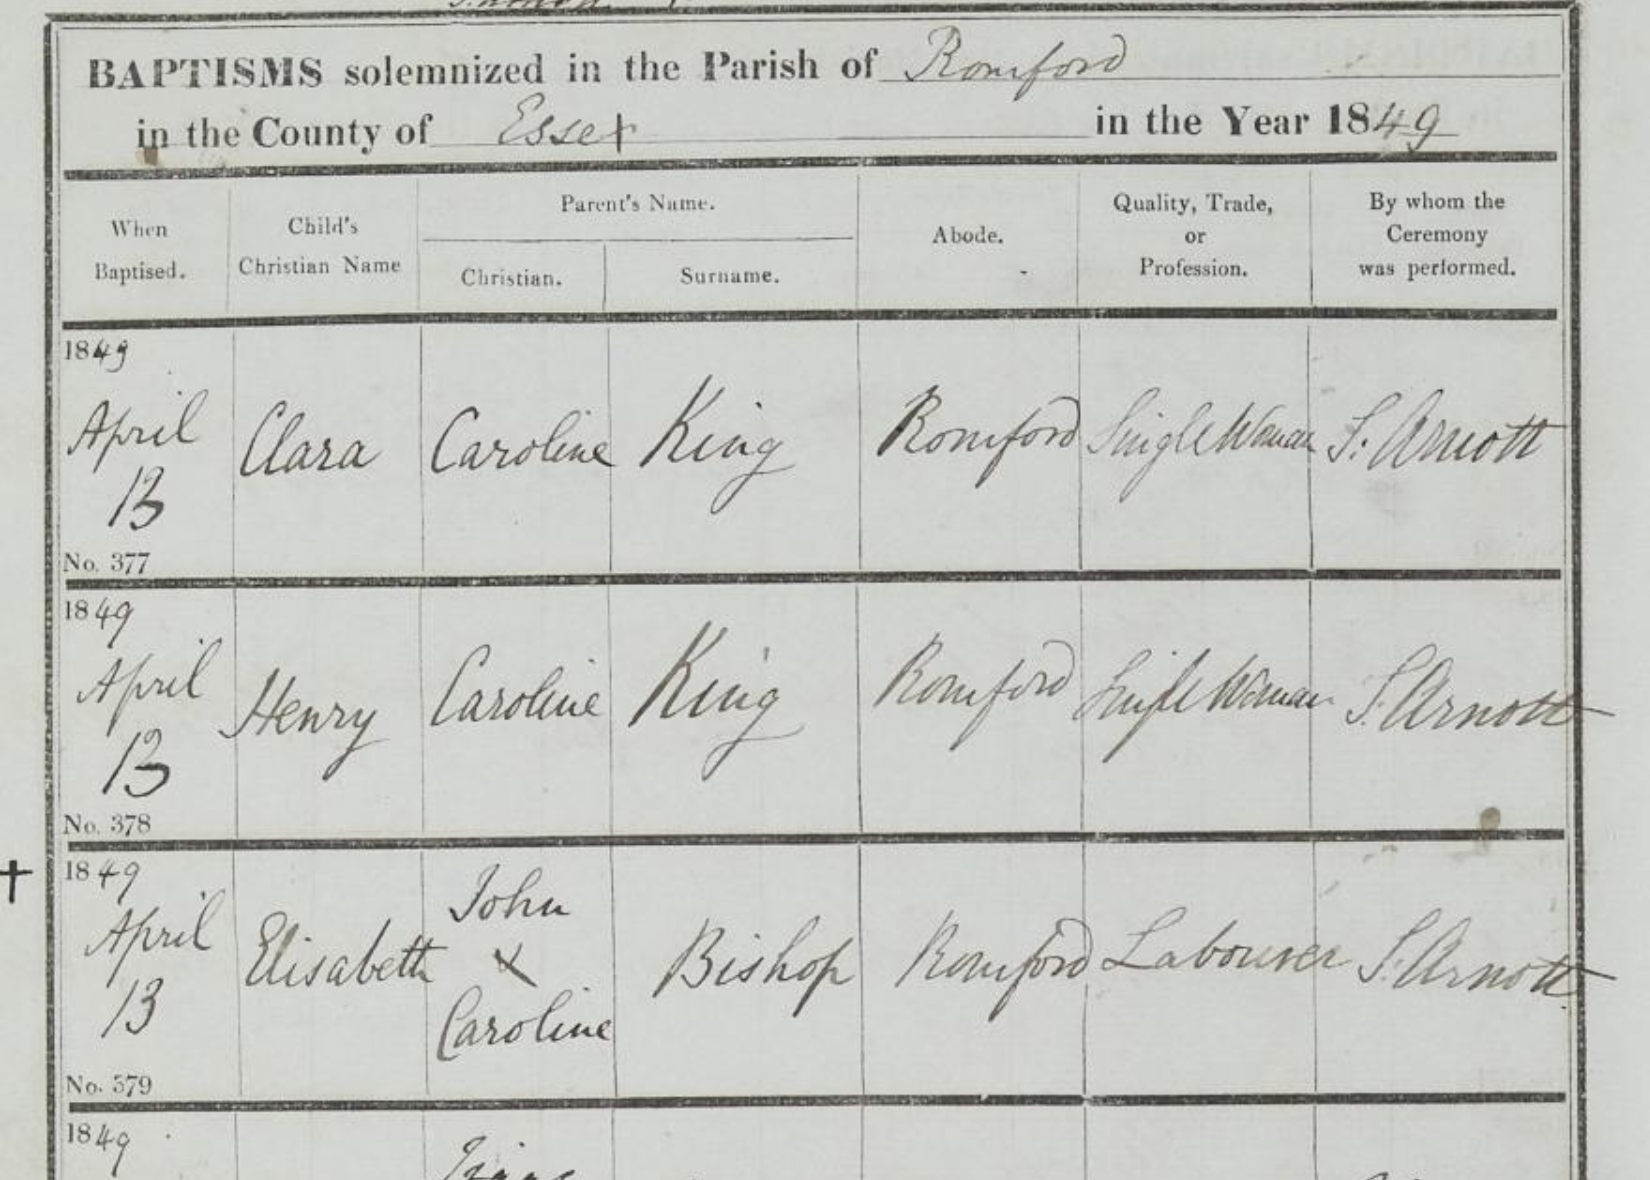 BAPTISMS solemnized in the Parish of Romford
in the County of Essex in the Year 1849
When Baptised.
Child's Christian Name
Parent's Name.
Christian.
Surname.
Abode.
Quality, Trade, or Profession.
By whom the Ceremony was performed.
1849
April 13
Clara
Caroline
King
Romford
Single Woman
S. Arnott
No. 377
1849
April 13
Henry
Caroline
King
Romford
Single Woman
S. Arnott
No. 378
†
1849
April 13
Elisabeth
John
x
Caroline
Bishop
Romford
Labourer
S. Arnott
No. 379
1849